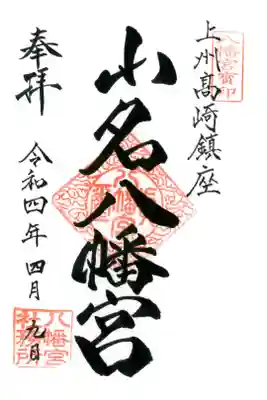 上州高崎鎮座
八幡宮寳印
小名八幡宮
奉拝
令和四年 四月 九日
八幡宮
社務所